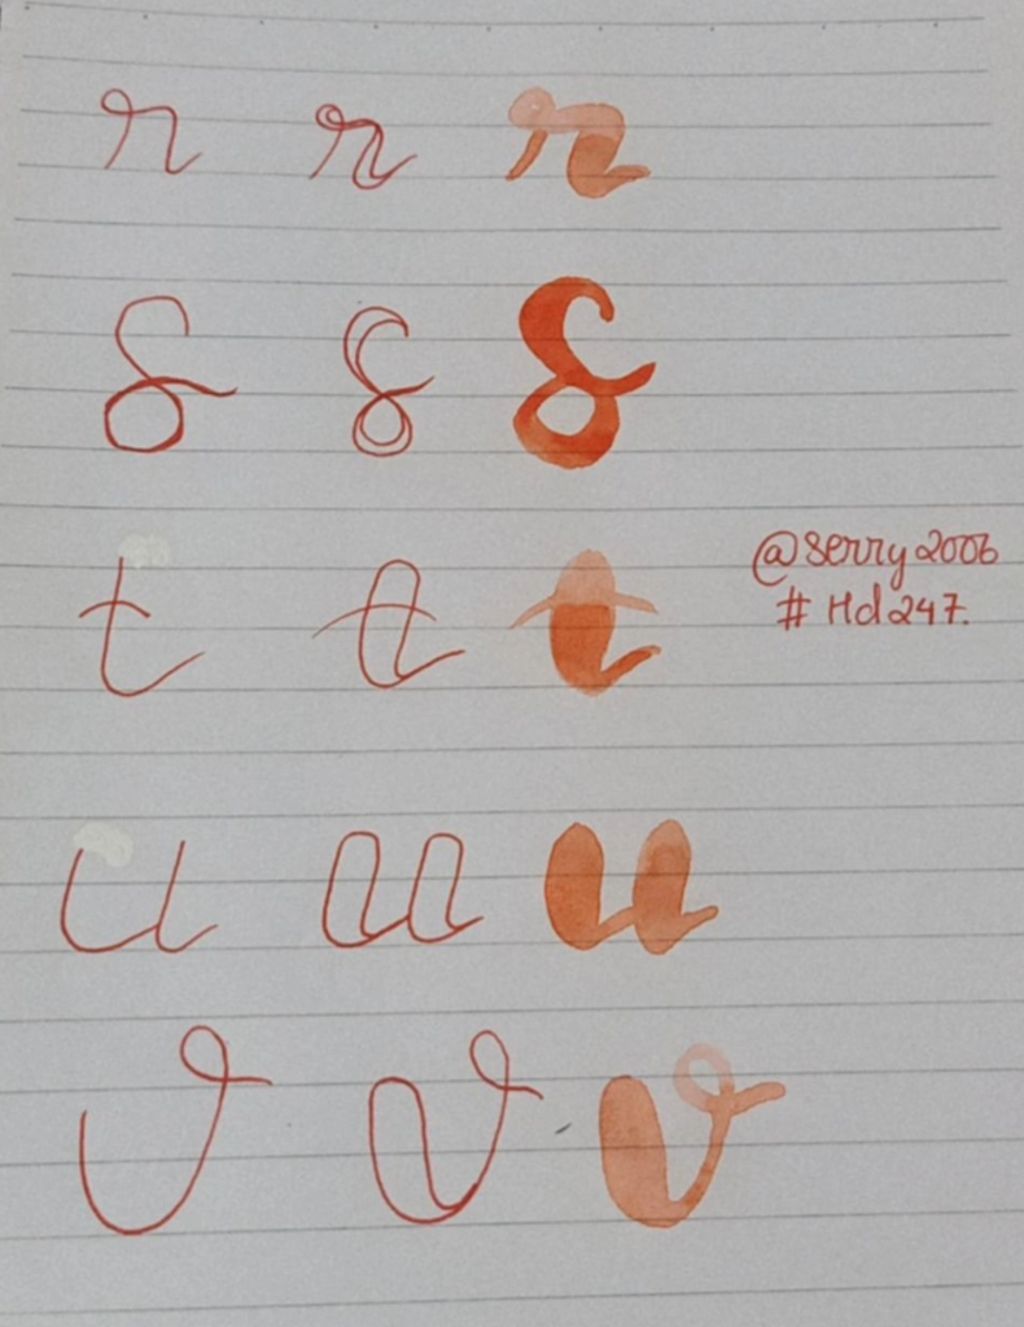 r r r
s s s
t t t
@serry2006
# Hd247.
u u u
v v v